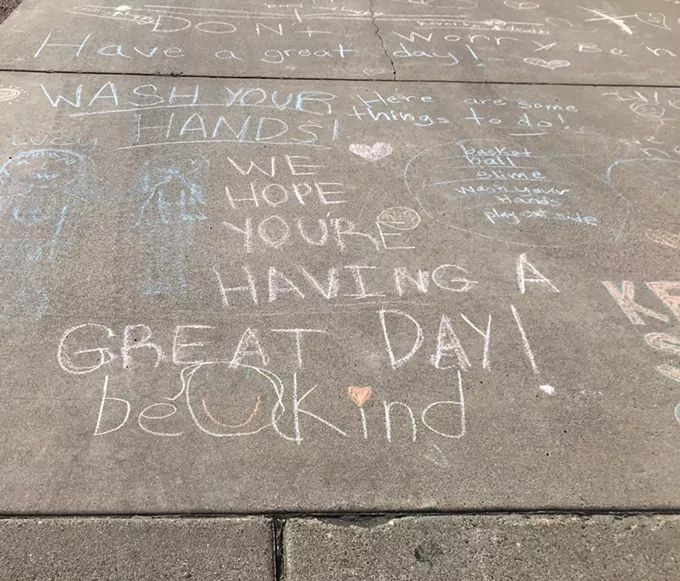 DON't Worry Be
Have a great day!
WASH YOUR
HANDS!
Here are some
things to do!
basket
ball
slime
wash your
Hands
play out side
WE
HOPE
YOU'RE
HAVING A
GREAT DAY!
be kind
KE